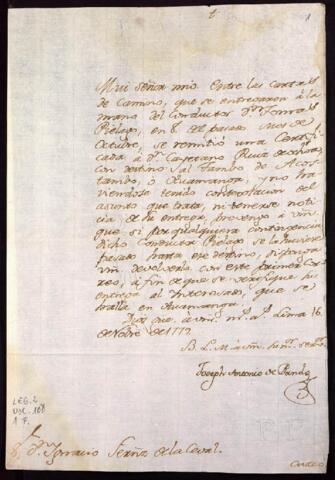 1
Mui Señor mio. Entre las cartas
de camino, que se entregaron à la
mano del Conductor Dn. Fernando
Pielago, en 8 del pasado Mes de
Octubre, se remitió una Certifi
cada à Dn. Cayetano Ruiz de
con destino al Tambo de Acos
tambo, ò Huamanga, y no ha
viendose tenido contestacion del
asunto que trata, ni tenerse noti
cia de su entrega, prevengo à vm.
que si por qualquiera contingencia
dicho Conductor Pielago se la huviese
pasado hasta ese destino, disponga
vm. devolverla con este primer Cor
reo, à fin de que se verifique su
entrega al Interesado, que se
halla en Huamanga.
Dios gue. à vm. ms. as. Lima 16
de Nobre. de 1779
B. L. M. à vm. su mr. servr.
Joseph Antonio de Pando
LEG. 2
1 F.
Sr. Dn. Ignacio Fernz de la Ceval.